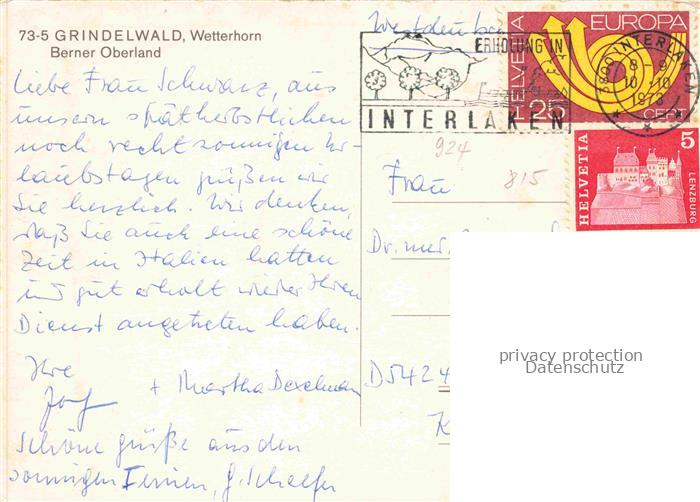 73-5 GRINDELWALD, Wetterhorn
Berner Oberland
Liebe Frau Schwarz, aus
unsern spätherbstlichen
noch recht sonnigen Ur-
laubstagen grüßen wir
Sie herzlich. Wir denken,
daß Sie auch eine schöne
Zeit in Italien hatten
und gut erholt wieder Ihren
Dienst angetreten haben.
Ihre
+ Martha
Schöne Grüße aus den
sonnigen Ferien, G. Schaefer
ERHOLUNG IN
INTERLAKEN
HELVETIA
EUROPA
25
CERT
3800 INTERLAKEN
8-9
10-10
1973
HELVETIA
5
LENZBURG
924
815
Frau
Dr. med.
D 5424
K
privacy protection
Datenschutz